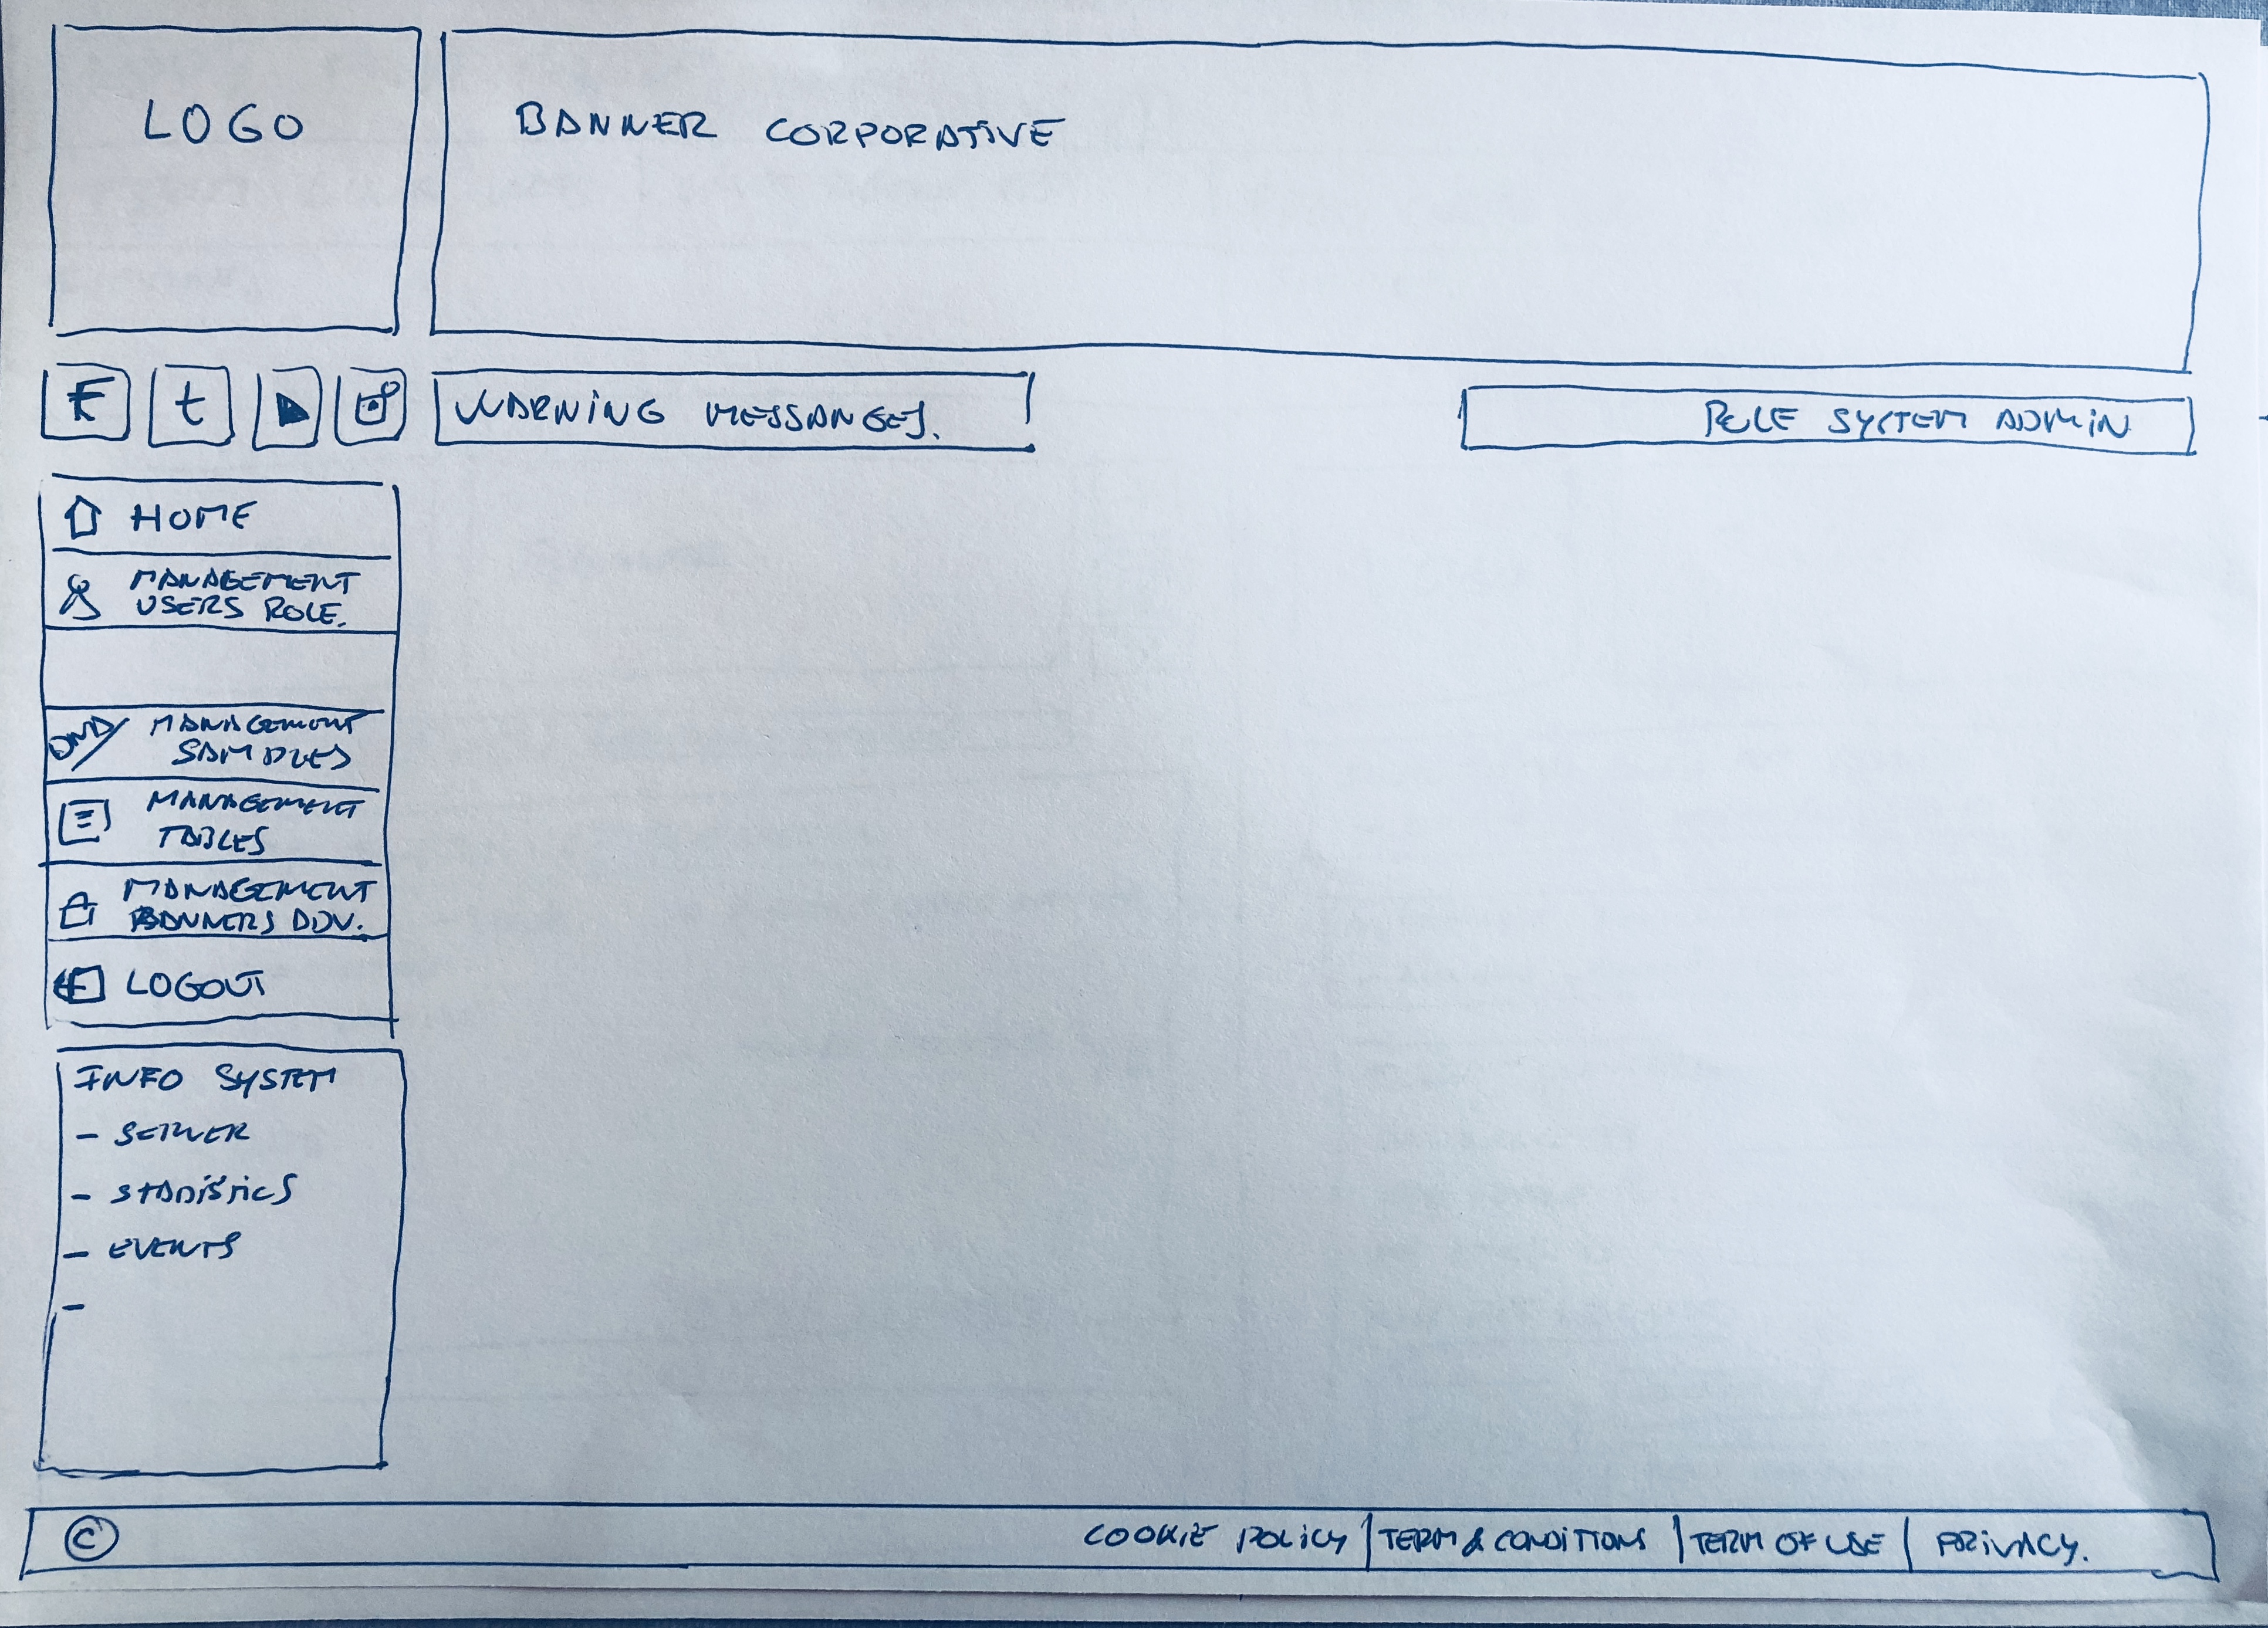 LOGO
BANNER CORPORATIVE
F
t
WARNING MESSANGES.
ROLE SYSTEM ADMIN
HOME
MANAGEMENT
USERS ROLE.
MANAGEMENT
SAMPLES
MANAGEMENT
TABLES
MANAGEMENT
BANNERS ADV.
LOGOUT
INFO SYSTEM
- SERVER
- STATISTICS
- EVENTS
-
© COOKIE POLICY | TERM & CONDITIONS | TERM OF USE | PRIVACY.